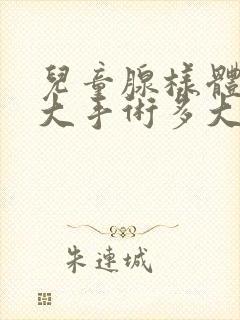 兒童腺樣體
大手術多大
朱連城